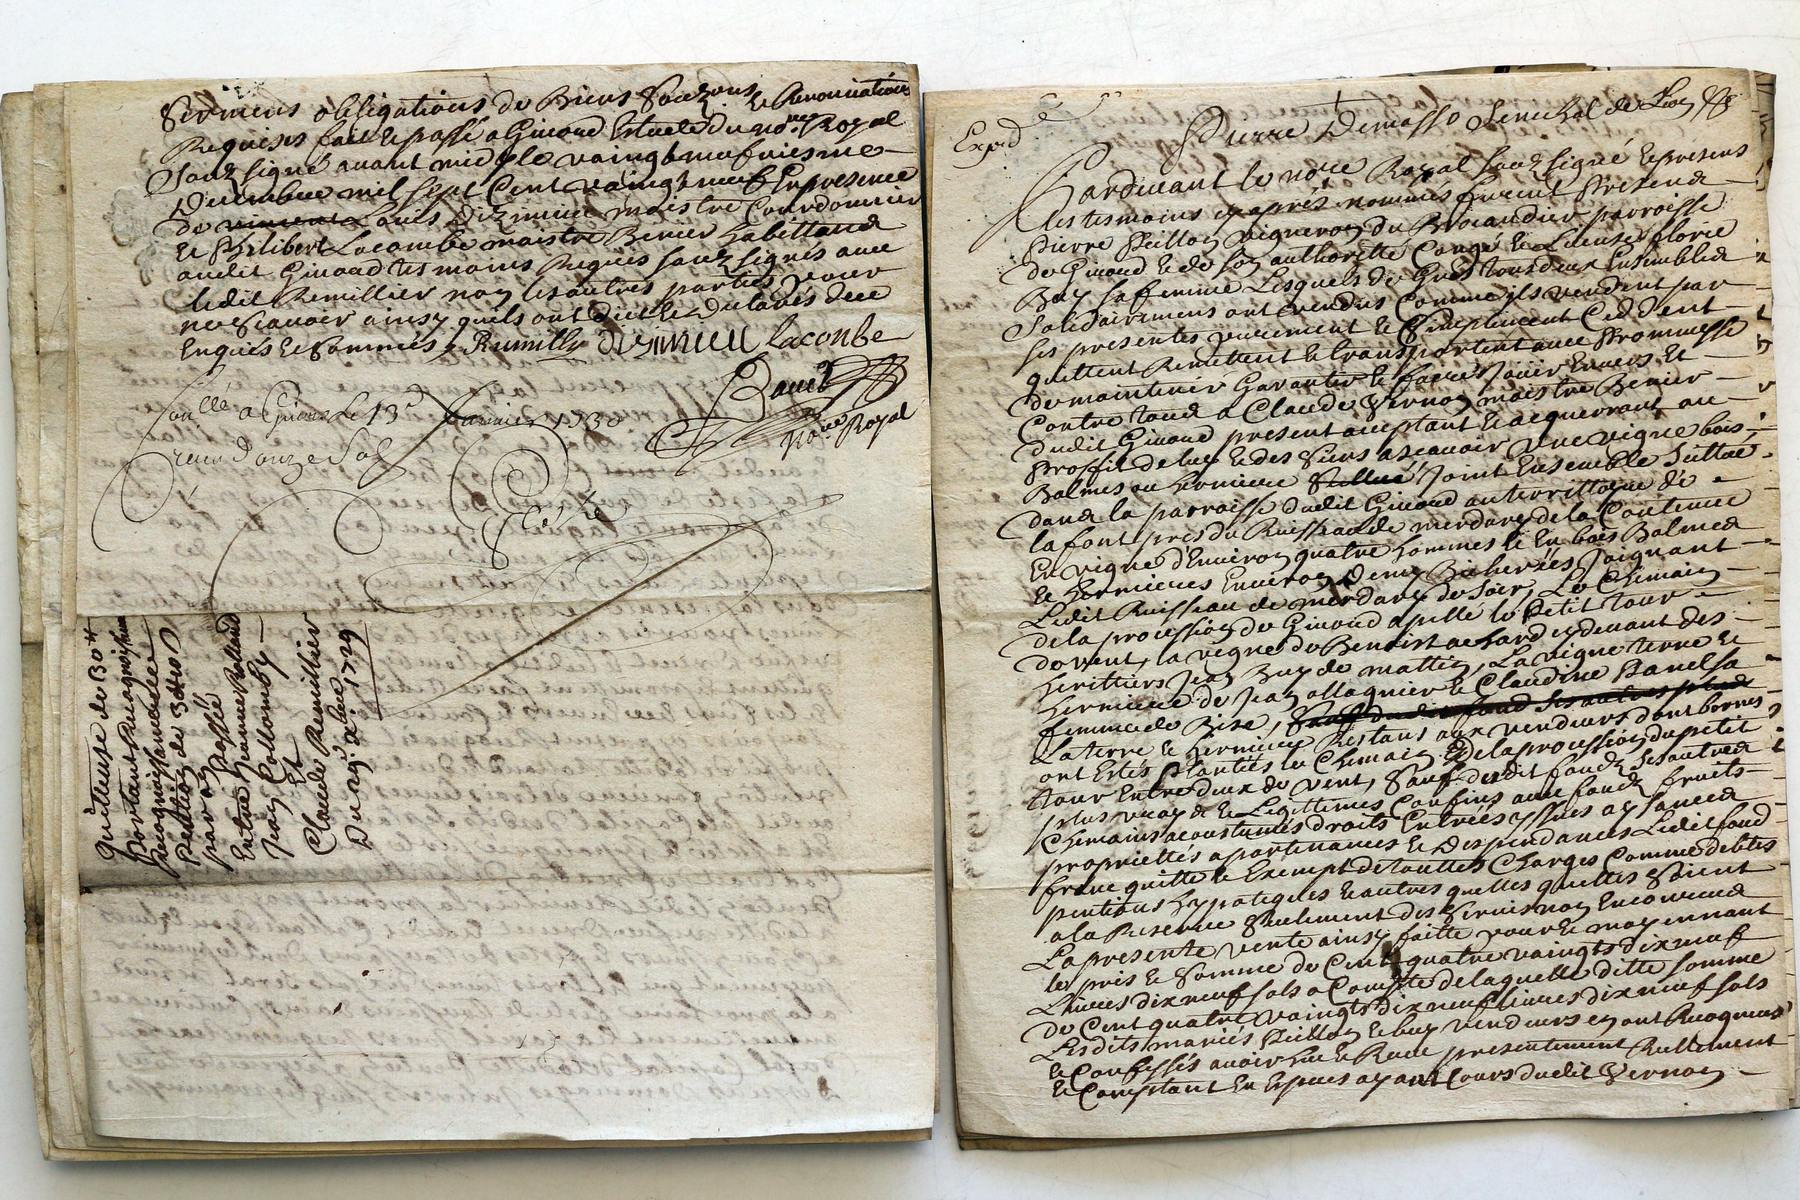 Sermens obligations de Biens Renonciations
Requises fait et passé a Givord Estude du no.re Royal
Souzsigné avant midy le vaingt neufviesme
Decembre mil sept Cent vaingt neuf En presence
de Louis Diziminu maistre Courdonnier
et Philibert Lacombe maistre Benier habittans
audit Givord tesmoins Requis souz signés avec
ledit Remillier non les autres parties pour
ne Scavoir ainsy quils ont dit et de
Enquis et Sommés
lacombe
no.re Royal
a Givors le 13.e Janvier 1730
Receu Douze Sols
Quitteuse de
portant Recognoissance
pention de
par
passé
Entre Jeanne Rolland
Jean Collomby
Et
Claude Remillier
Du 29.e xbre 1729
Exped.é
Pierre Demasso Senechal de Lion
Pardevant le no.re Royal souz signé et presens
les tesmoins cy aprés nommés furent presens
Pierre Peillon vigneron du parroisse
de Givord et de son authorité Congé et License
Buy sa femme Lesquels de Gré tous deux Ensembles
Solidairement ont vendus Comme ils vendent par
ses presentes purement et Simplement Ceddent
quittent Remettent et transportent avec Prommesse
de maintenir Garantir et faire Jouir Envers et
Contre tous a Claude Vernon maistre Benier
dudit Givord present aceptant et acquerrant au
proffit de luy et des siens ascavoir une vigne bois
Balmes ou hermiere Joint Ensemble Scittué
dans la parroisse dudit Givord au territtoire de
la font pres du Ruisseau de merdary de la Contenue
En vigne d'Environ quatre hommes et En bois Balmes
et hermieres Environ Demy Bicherées Joignant
Ledit Ruisseau de merdary de soir, Le Chemain
de la procession de Givord apellé le petit tour
de vent, la vigne de Benoist cy devant des
herittiers Jean Buy de mattin, La vigne terre et
hermiere de Jean allagnier et Claudine Panel sa
femme de Bise,
La terre et hermiere Restans aux vendeurs dont bornes
ont Estés plantées le Chemain de la procession du petit
tour Entre deux de vent, Sauf dudit fondz ses autres
plus vrays et Legittimes Confins avec fondz fruits
Chemains acoustumés droits Entrées yssues aysances
propriettés apartenances et Despendances Ledit fond
franc quitte et Exempt de touttes Charges Comme debtes
pentions hypoteques et autres quelles quelles soient
a la Reserve Seulement des Servis non Encourus
La presente vente ainsy faitte pour et moyennant
le pris et Somme de Cent quatre vaingts dix neuf
Livres dix neuf sols a Compte de laquelle ditte Somme
de Cent quatre vaingts dix neuf livres dix neuf sols
Lesdits mariés Peillon et buy vendeurs en ont Recognus
et Confessés avoir heu et Receu presentement Reellement
et Comptant En Espece ayant Cours dudit Vernon